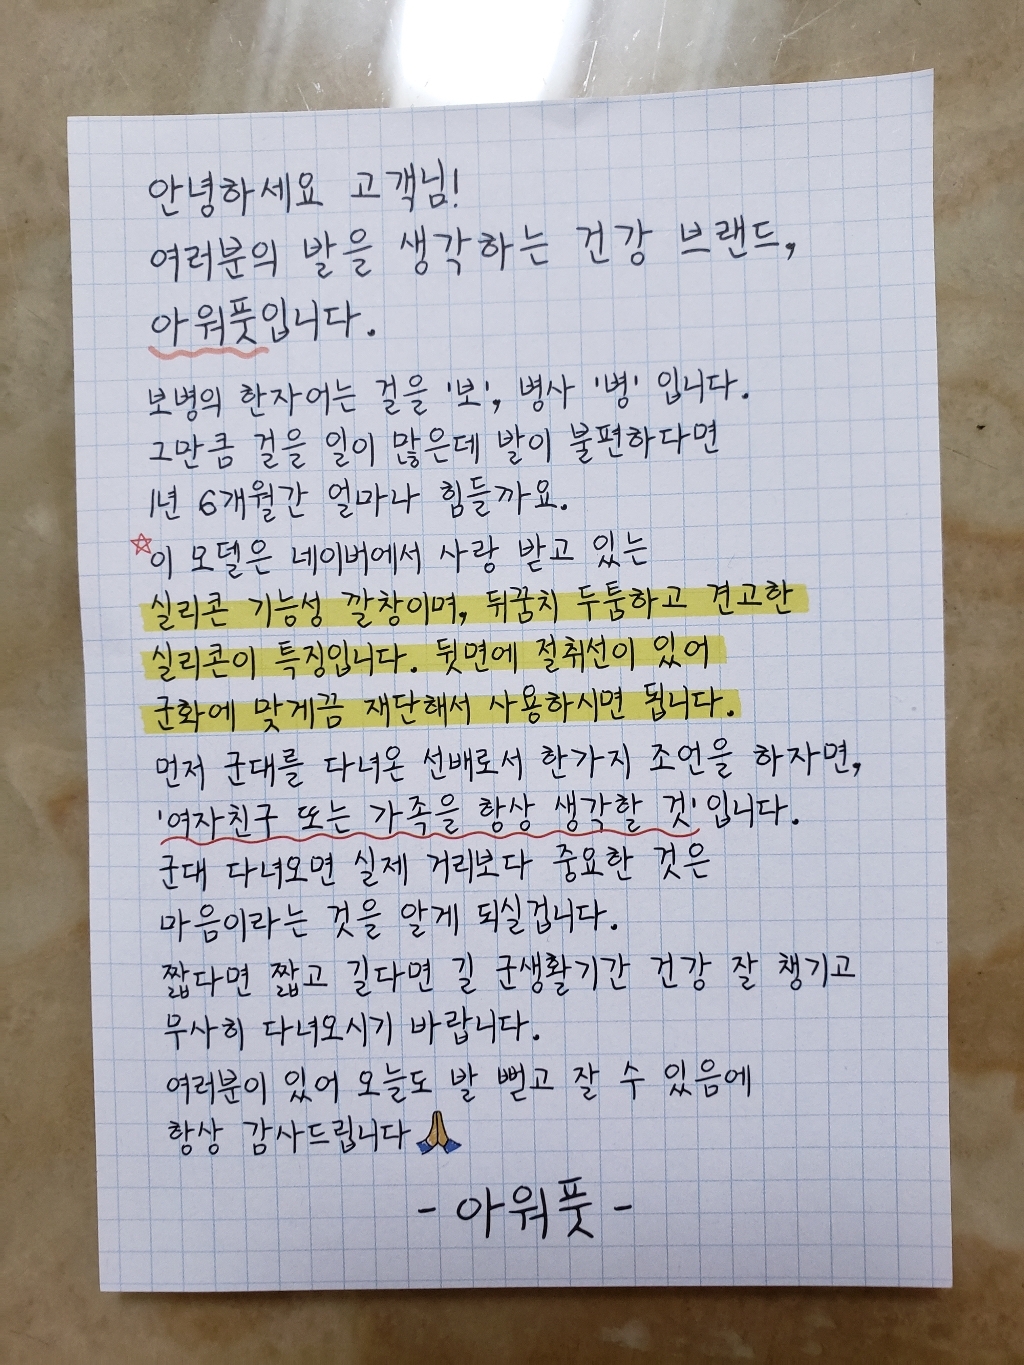 안녕하세요 고객님!
여러분의 발을 생각하는 건강 브랜드,
아워풋입니다.
보병의 한자어는 걸을 '보', 병사 '병' 입니다.
그만큼 걸을 일이 많은데 발이 불편하다면
1년 6개월간 얼마나 힘들까요.
☆이 모델은 네이버에서 사랑 받고 있는
실리콘 기능성 깔창이며, 뒤꿈치 두툼하고 견고한
실리콘이 특징입니다. 뒷면에 절취선이 있어
군화에 맞게끔 재단해서 사용하시면 됩니다.
먼저 군대를 다녀온 선배로서 한가지 조언을 하자면,
'여자친구 또는 가족을 항상 생각할 것' 입니다.
군대 다녀오면 실제 거리보다 중요한 것은
마음이라는 것을 알게 되실겁니다.
짧다면 짧고 길다면 길 군생활기간 건강 잘 챙기고
무사히 다녀오시기 바랍니다.
여러분이 있어 오늘도 발 뻗고 잘 수 있음에
항상 감사드립니다🙏
- 아워풋 -